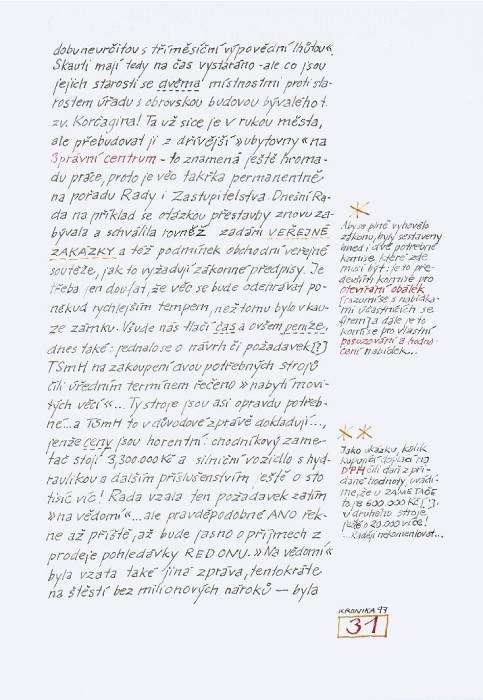 dobu neurčitou s tříměsíční výpovědní lhůtou«.
Skauti mají tedy na čas vystaráno - ale co jsou
jejich starosti se dvěma místnostmi proti sta-
rostem úřadu s obrovskou budovou bývalého t.
zv. Korčagina! Ta už sice je v rukou města,
ale přebudovat ji z dřívější »ubytovny« na
Správní centrum - to znamená ještě hroma-
du práce, proto je věc takřka permanentně
na pořadu Rady i Zastupitelstva. Dnešní Ra-
da na příklad se otázkou přestavby znovu za-
bývala a schválila rovněž zadání VEŘEJNÉ
ZAKÁZKY a též podmínek obchodní veřejné
soutěže, jak to vyžadují zákonné předpisy. Je
třeba jen doufat, že věc se bude odehrávat po-
někud rychlejším tempem, než tomu bylo v kau-
ze zámku. Všude nás tlačí čas a ovšem peníze,
dnes také: jednalo se o návrh či požadavek [?]
TSmH na zakoupení dvou potřebných strojů
čili úředním termínem řečeno »nabytí movi-
tých věcí«... Ty stroje jsou asi opravdu potřeb-
né...a TSmH to v důvodové zprávě dokladují...,
jenže ceny jsou horentní: chodníkový zame-
tač stojí 3,300.000 Kč a silniční vozidlo s hyd-
raulikou a dalším příslušenstvím ještě o sto
tisíc víc! Rada vzala ten požadavek zatím
»na vědomí«...ale pravděpodobné ANO řek-
ne až příště, až bude jasno o příjmech z
prodeje pohledávky REDONU. »Na vědomí«
byla vzata také jiná zpráva, tentokráte
na štěstí bez milionových nároků — byla
*
Aby se plně vyhovělo
zákonu, byly sestaveny
hned i dvě potřebné
komise, které zde
musí být: je to pře-
devším komise pro
otevírání obálek
(rozumí se s nabídka-
mi účastnících se
firem) a dále je to
komise pro vlastní
posuzování a hodno-
cení nabídek...
**
Jako ukázku, kolik
kupující doplácí na
DPH čili dani z při-
dané hodnoty, uvádí-
me, že u ZAMETAČE
to je 600.000 Kč [!],
u druhého stroje
ještě o 20.000 více!
...Raději nekomentovat...
KRONIKA 97
31